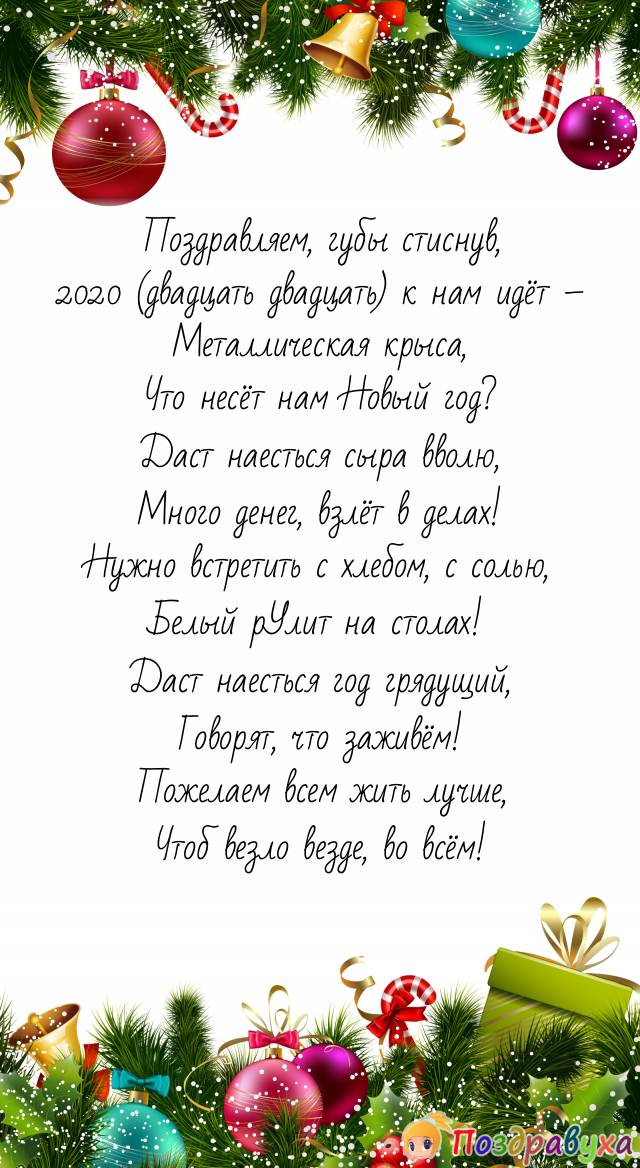 Поздравляем, губы стиснув,
2020 (двадцать двадцать) к нам идёт –
Металлическая крыса,
Что несёт нам Новый год?
Даст наесться сыра вволю,
Много денег, взлёт в делах!
Нужно встретить с хлебом, с солью,
Белый рУлит на столах!
Даст наесться год грядущий,
Говорят, что заживём!
Пожелаем всем жить лучше,
Чтоб везло везде, во всём!
Поздравуха